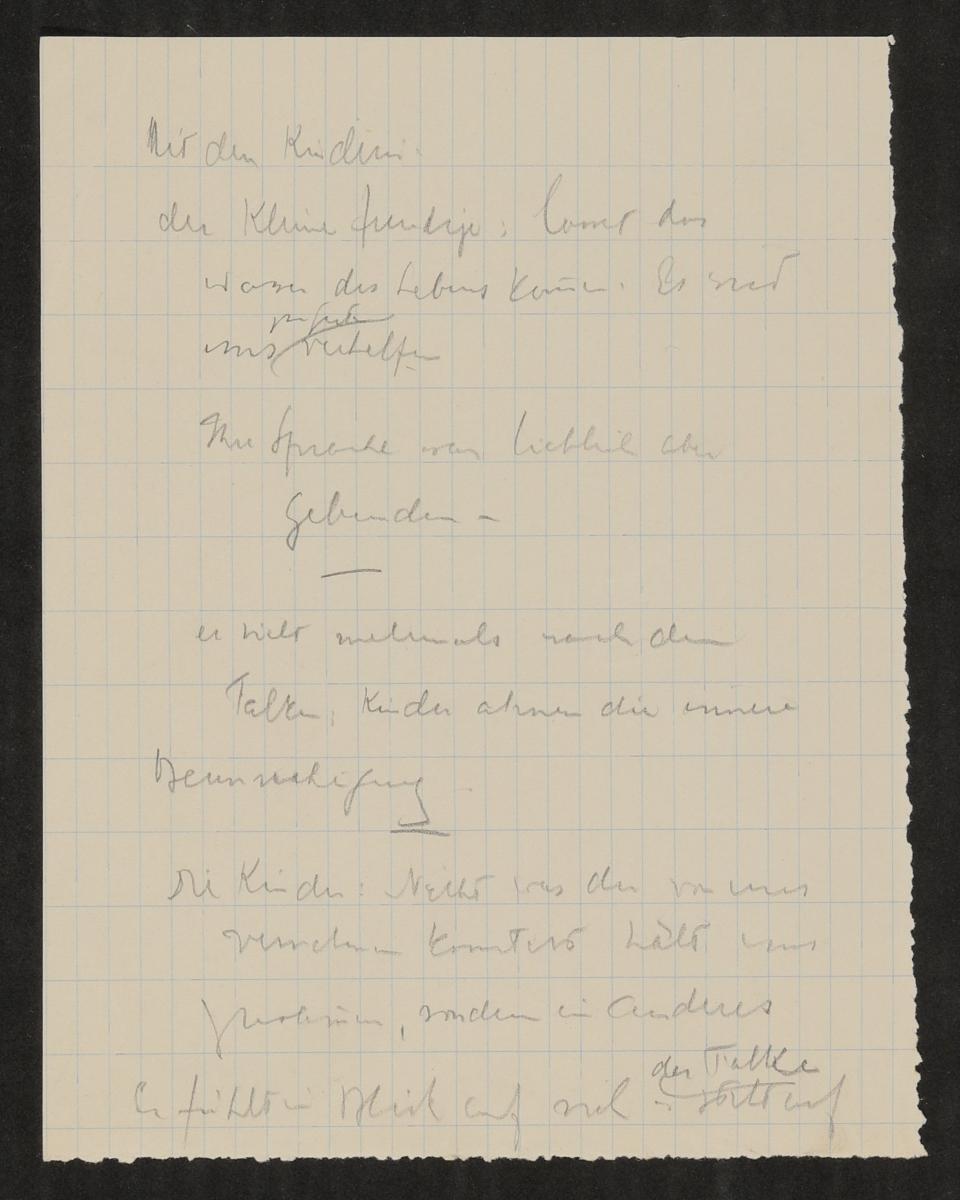 Mit den Kindern.
der Kleine freudige: lasset das
Wasser des Lebens kommen. Es wird
uns verhelfen
Ihre Sprache war lieblich aber
Gebunden –
er sieht mehrmals nach dem
Falken, Kinder ahnen die innere
Beunruhigung
Die Kinder: Nicht was du von uns
vernehmen konntest hält uns
, sondern ein Anderes
der Falke
Er fühlt ein Blick auf sich auf